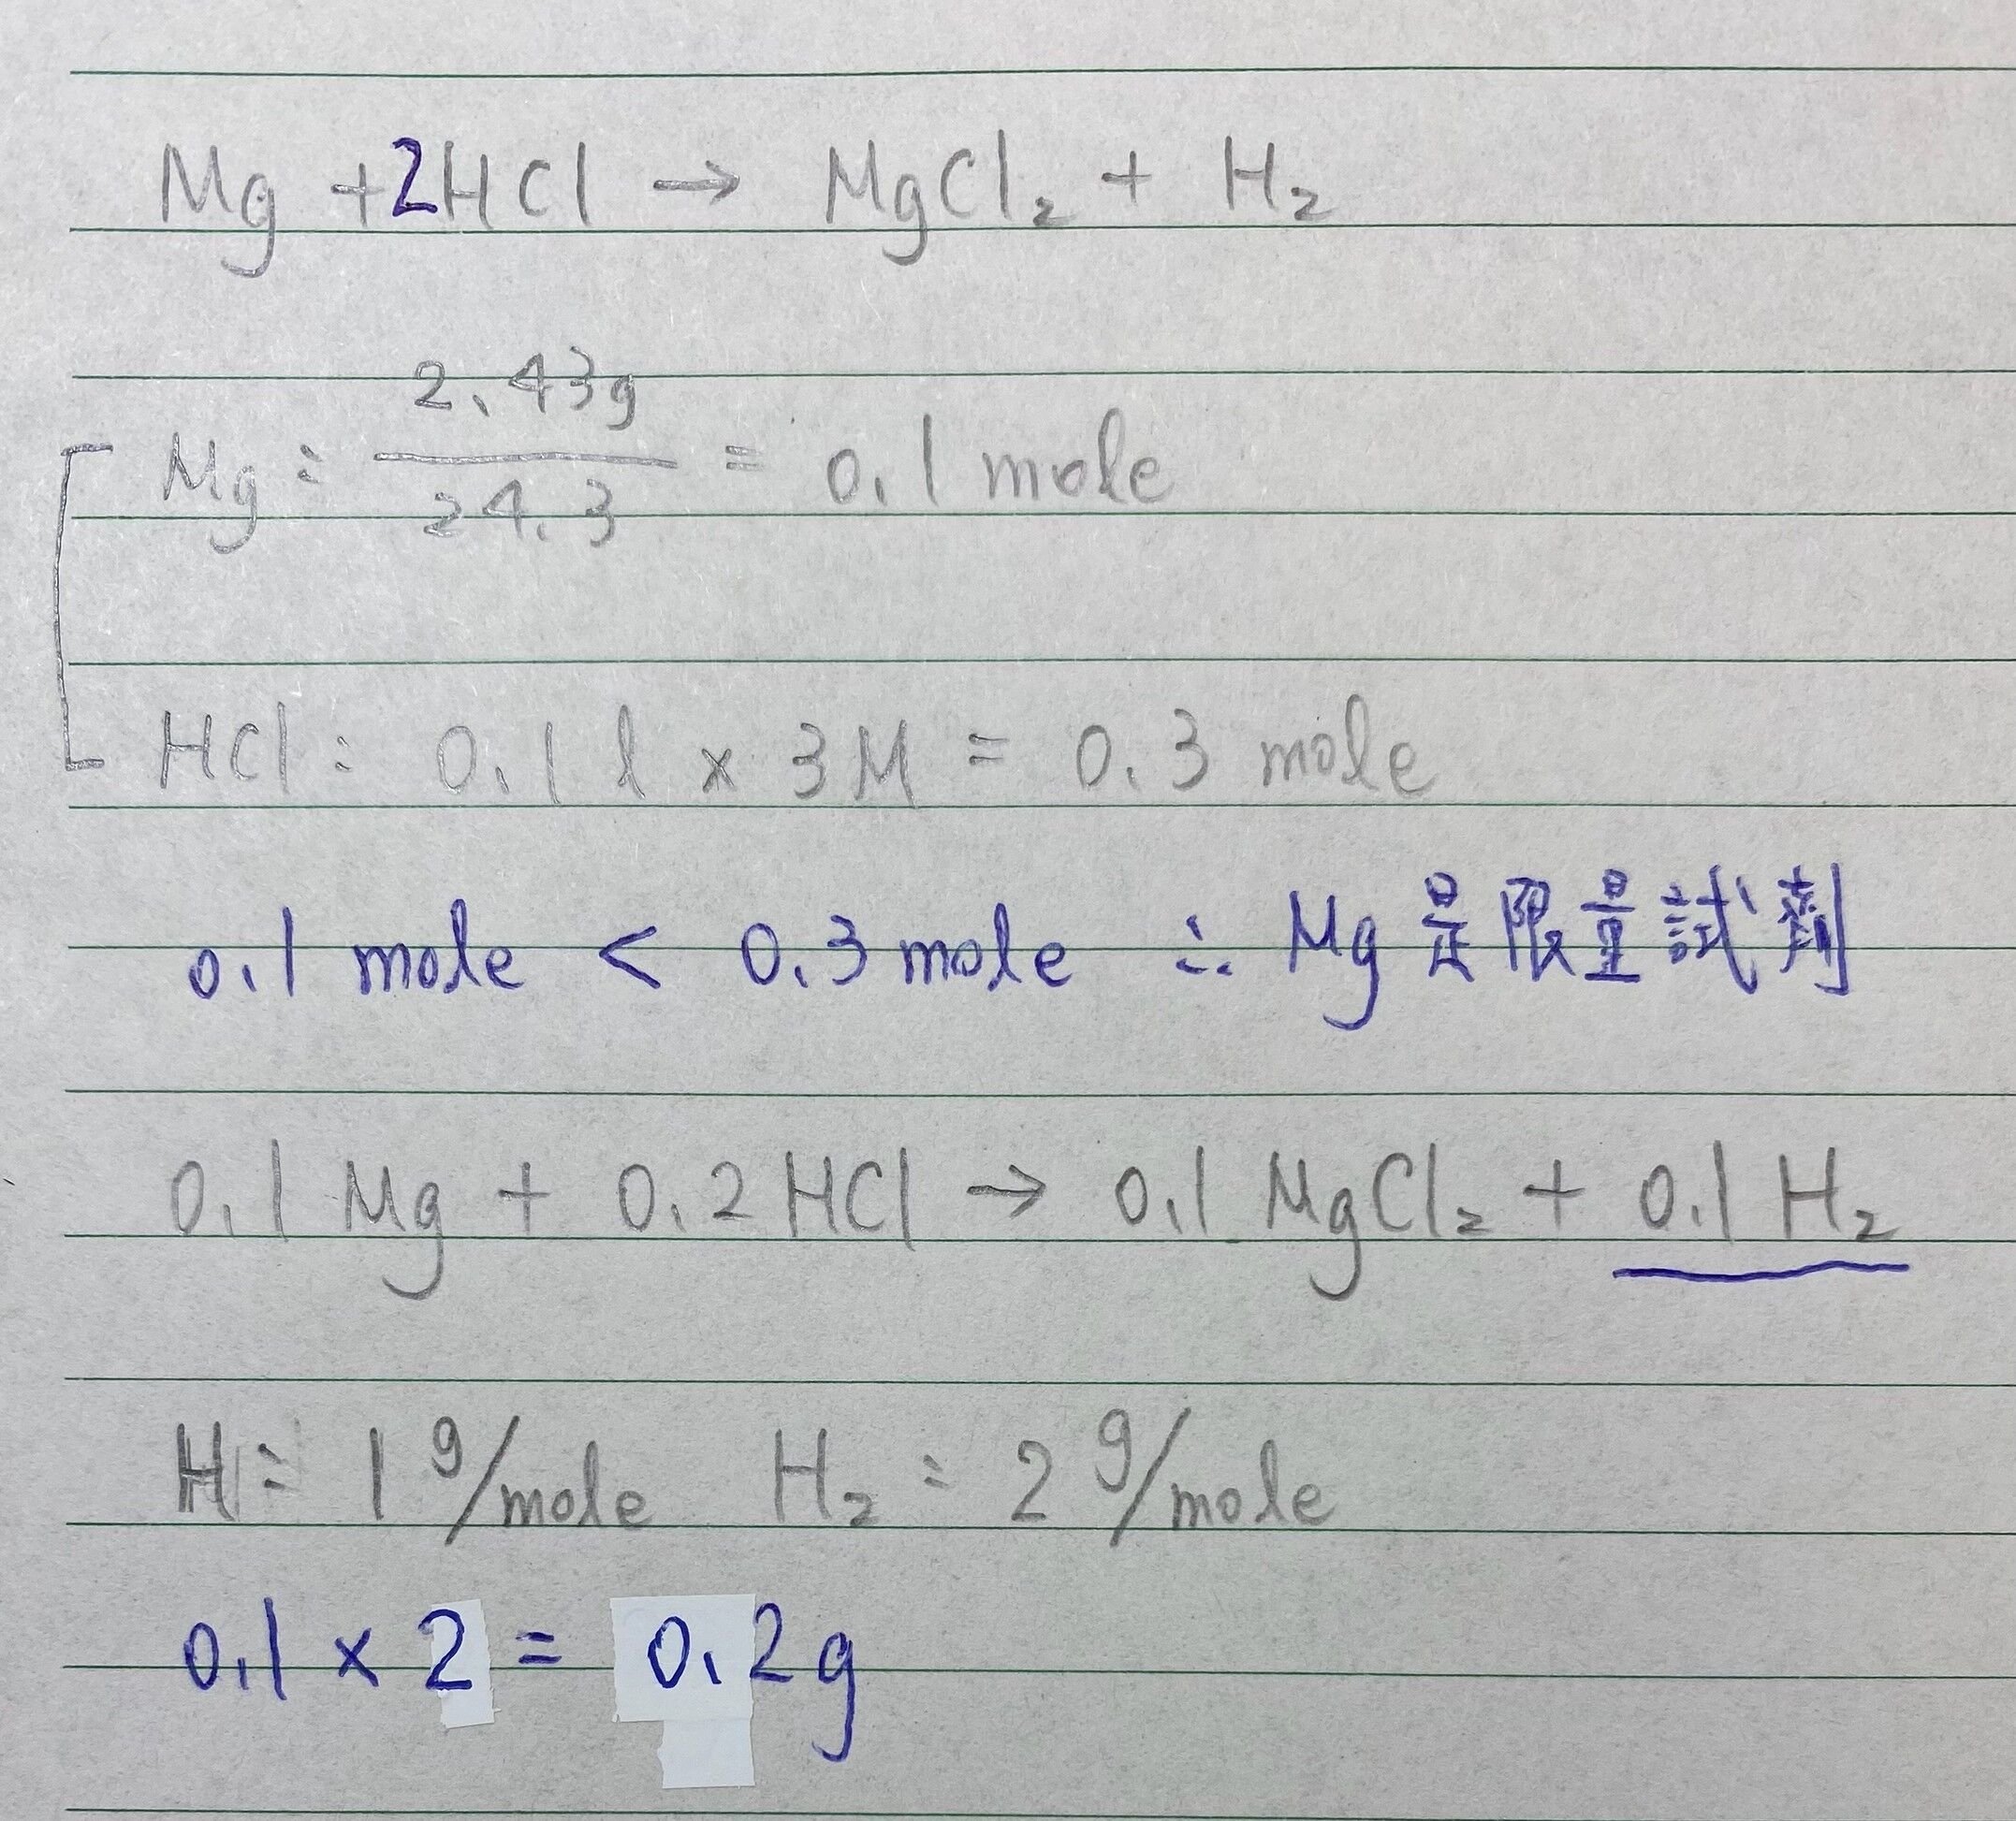 Mg + 2HCl → MgCl₂ + H₂
Mg : 2.43g / 24.3 = 0.1 mole
HCl : 0.1 l × 3M = 0.3 mole
0.1 mole < 0.3 mole ∴ Mg 是限量試劑
0.1 Mg + 0.2 HCl → 0.1 MgCl₂ + 0.1 H₂
H : 1 g/mole H₂ : 2 g/mole
0.1 × 2 = 0.2g